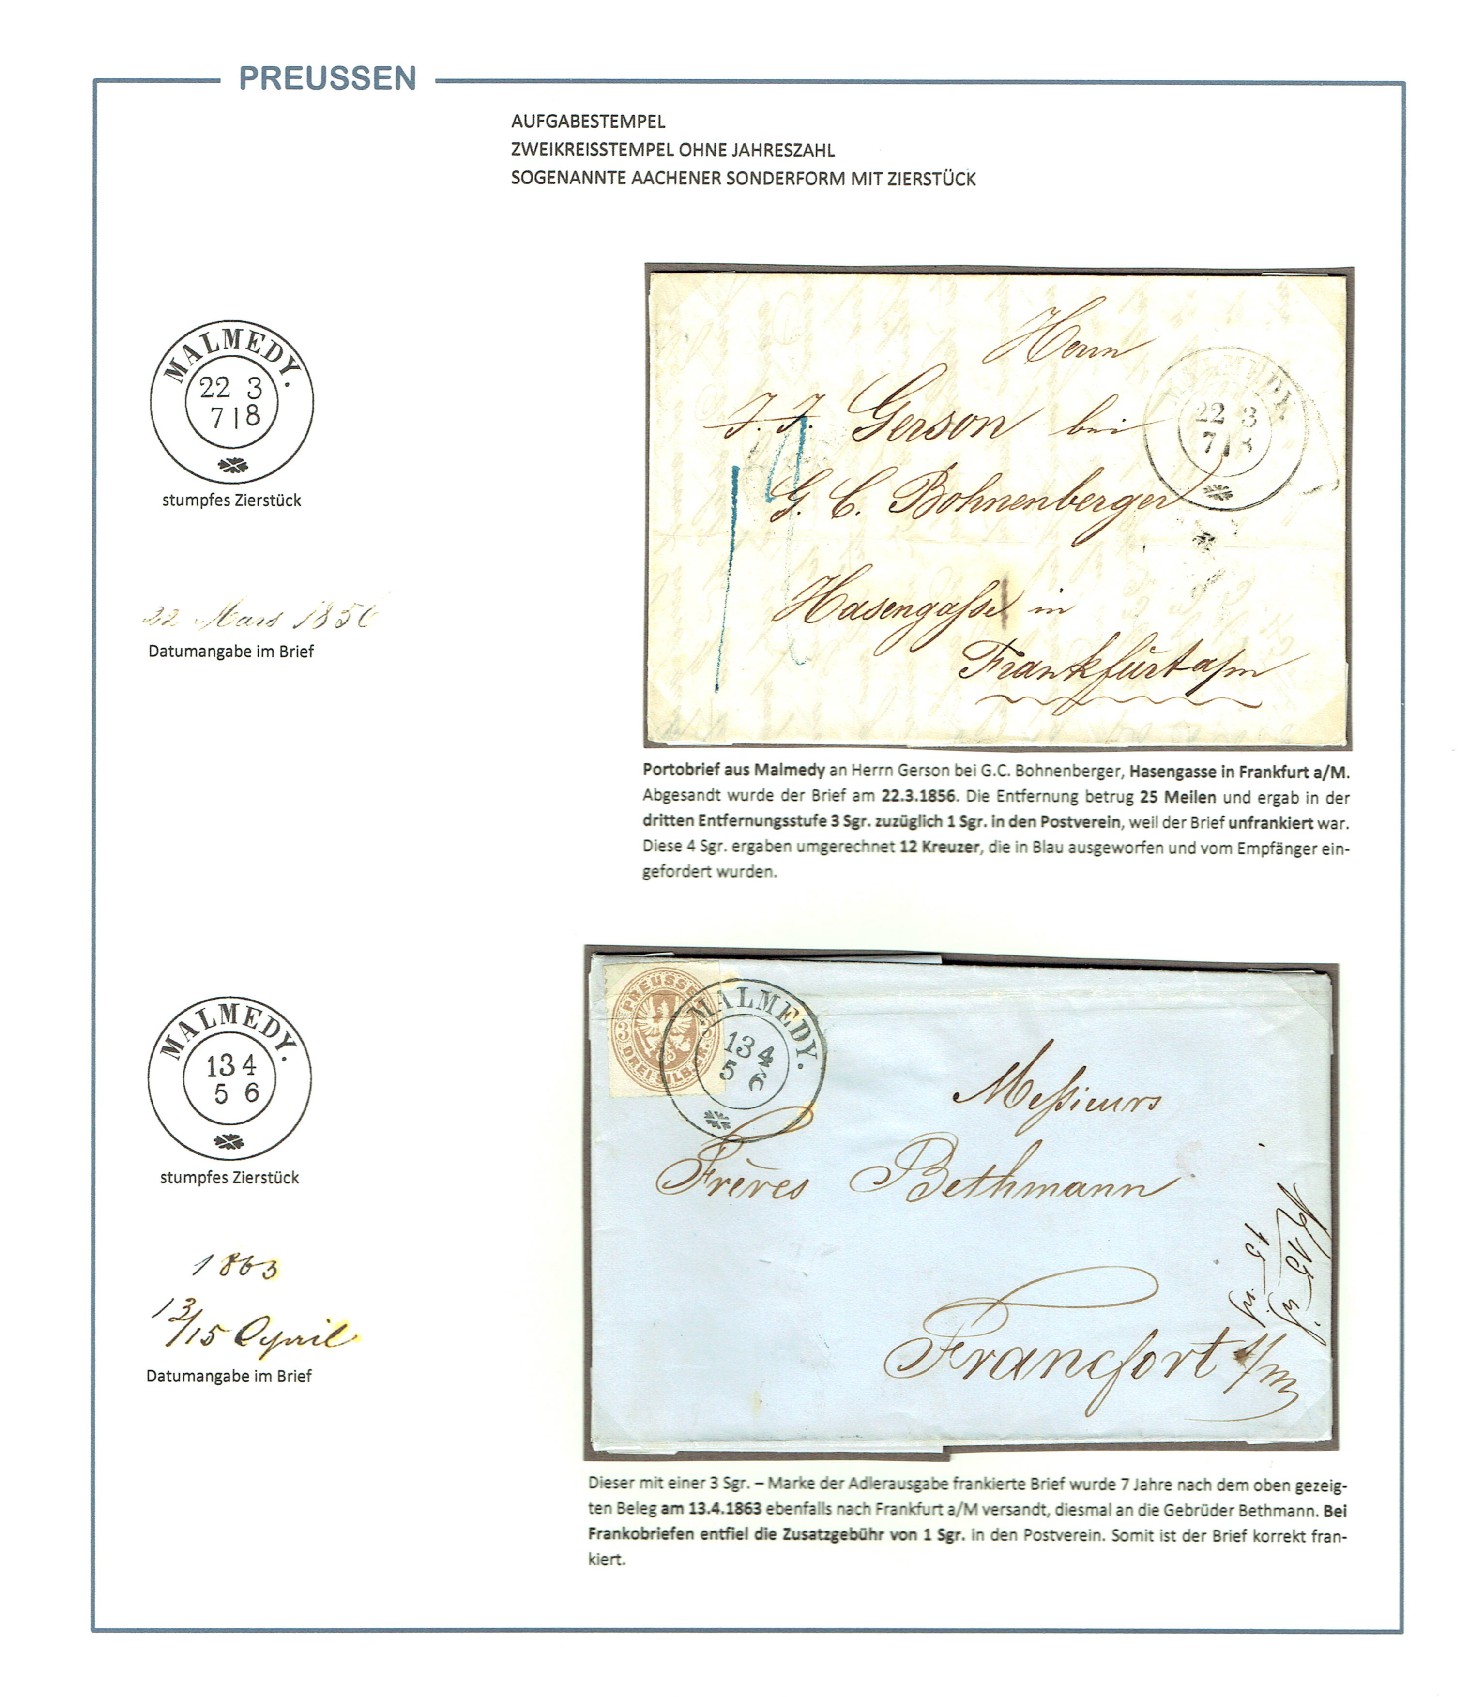 PREUSSEN
AUFGABESTEMPEL
ZWEIKREISSTEMPEL OHNE JAHRESZAHL
SOGENANNTE AACHENER SONDERFORM MIT ZIERSTÜCK
MALMEDY.
22 3
7 | 8
stumpfes Zierstück
22 Mars 1856
Datumangabe im Brief
Herrn
J. J. Gerson bei
G. C. Bohnenberger
Hasengasse in
Frankfurt a/m
MEDY.
22 3
7 | 8
Portobrief aus Malmedy an Herrn Gerson bei G.C. Bohnenberger, Hasengasse in Frankfurt a/M.
Abgesandt wurde der Brief am 22.3.1856. Die Entfernung betrug 25 Meilen und ergab in der
dritten Entfernungsstufe 3 Sgr. zuzüglich 1 Sgr. in den Postverein, weil der Brief unfrankiert war.
Diese 4 Sgr. ergaben umgerechnet 12 Kreuzer, die in Blau ausgeworfen und vom Empfänger ein-
gefordert wurden.
MALMEDY.
13 4
5 6
stumpfes Zierstück
1863
13/15 April
Datumangabe im Brief
PREUSSE
3
DREI SILB. GR.
MALMEDY.
13 4
5 6
Messieurs
Frères Bethmann
Francfort s/m
Dieser mit einer 3 Sgr. – Marke der Adlerausgabe frankierte Brief wurde 7 Jahre nach dem oben gezeig-
ten Beleg am 13.4.1863 ebenfalls nach Frankfurt a/M versandt, diesmal an die Gebrüder Bethmann. Bei
Frankobriefen entfiel die Zusatzgebühr von 1 Sgr. in den Postverein. Somit ist der Brief korrekt fran-
kiert.